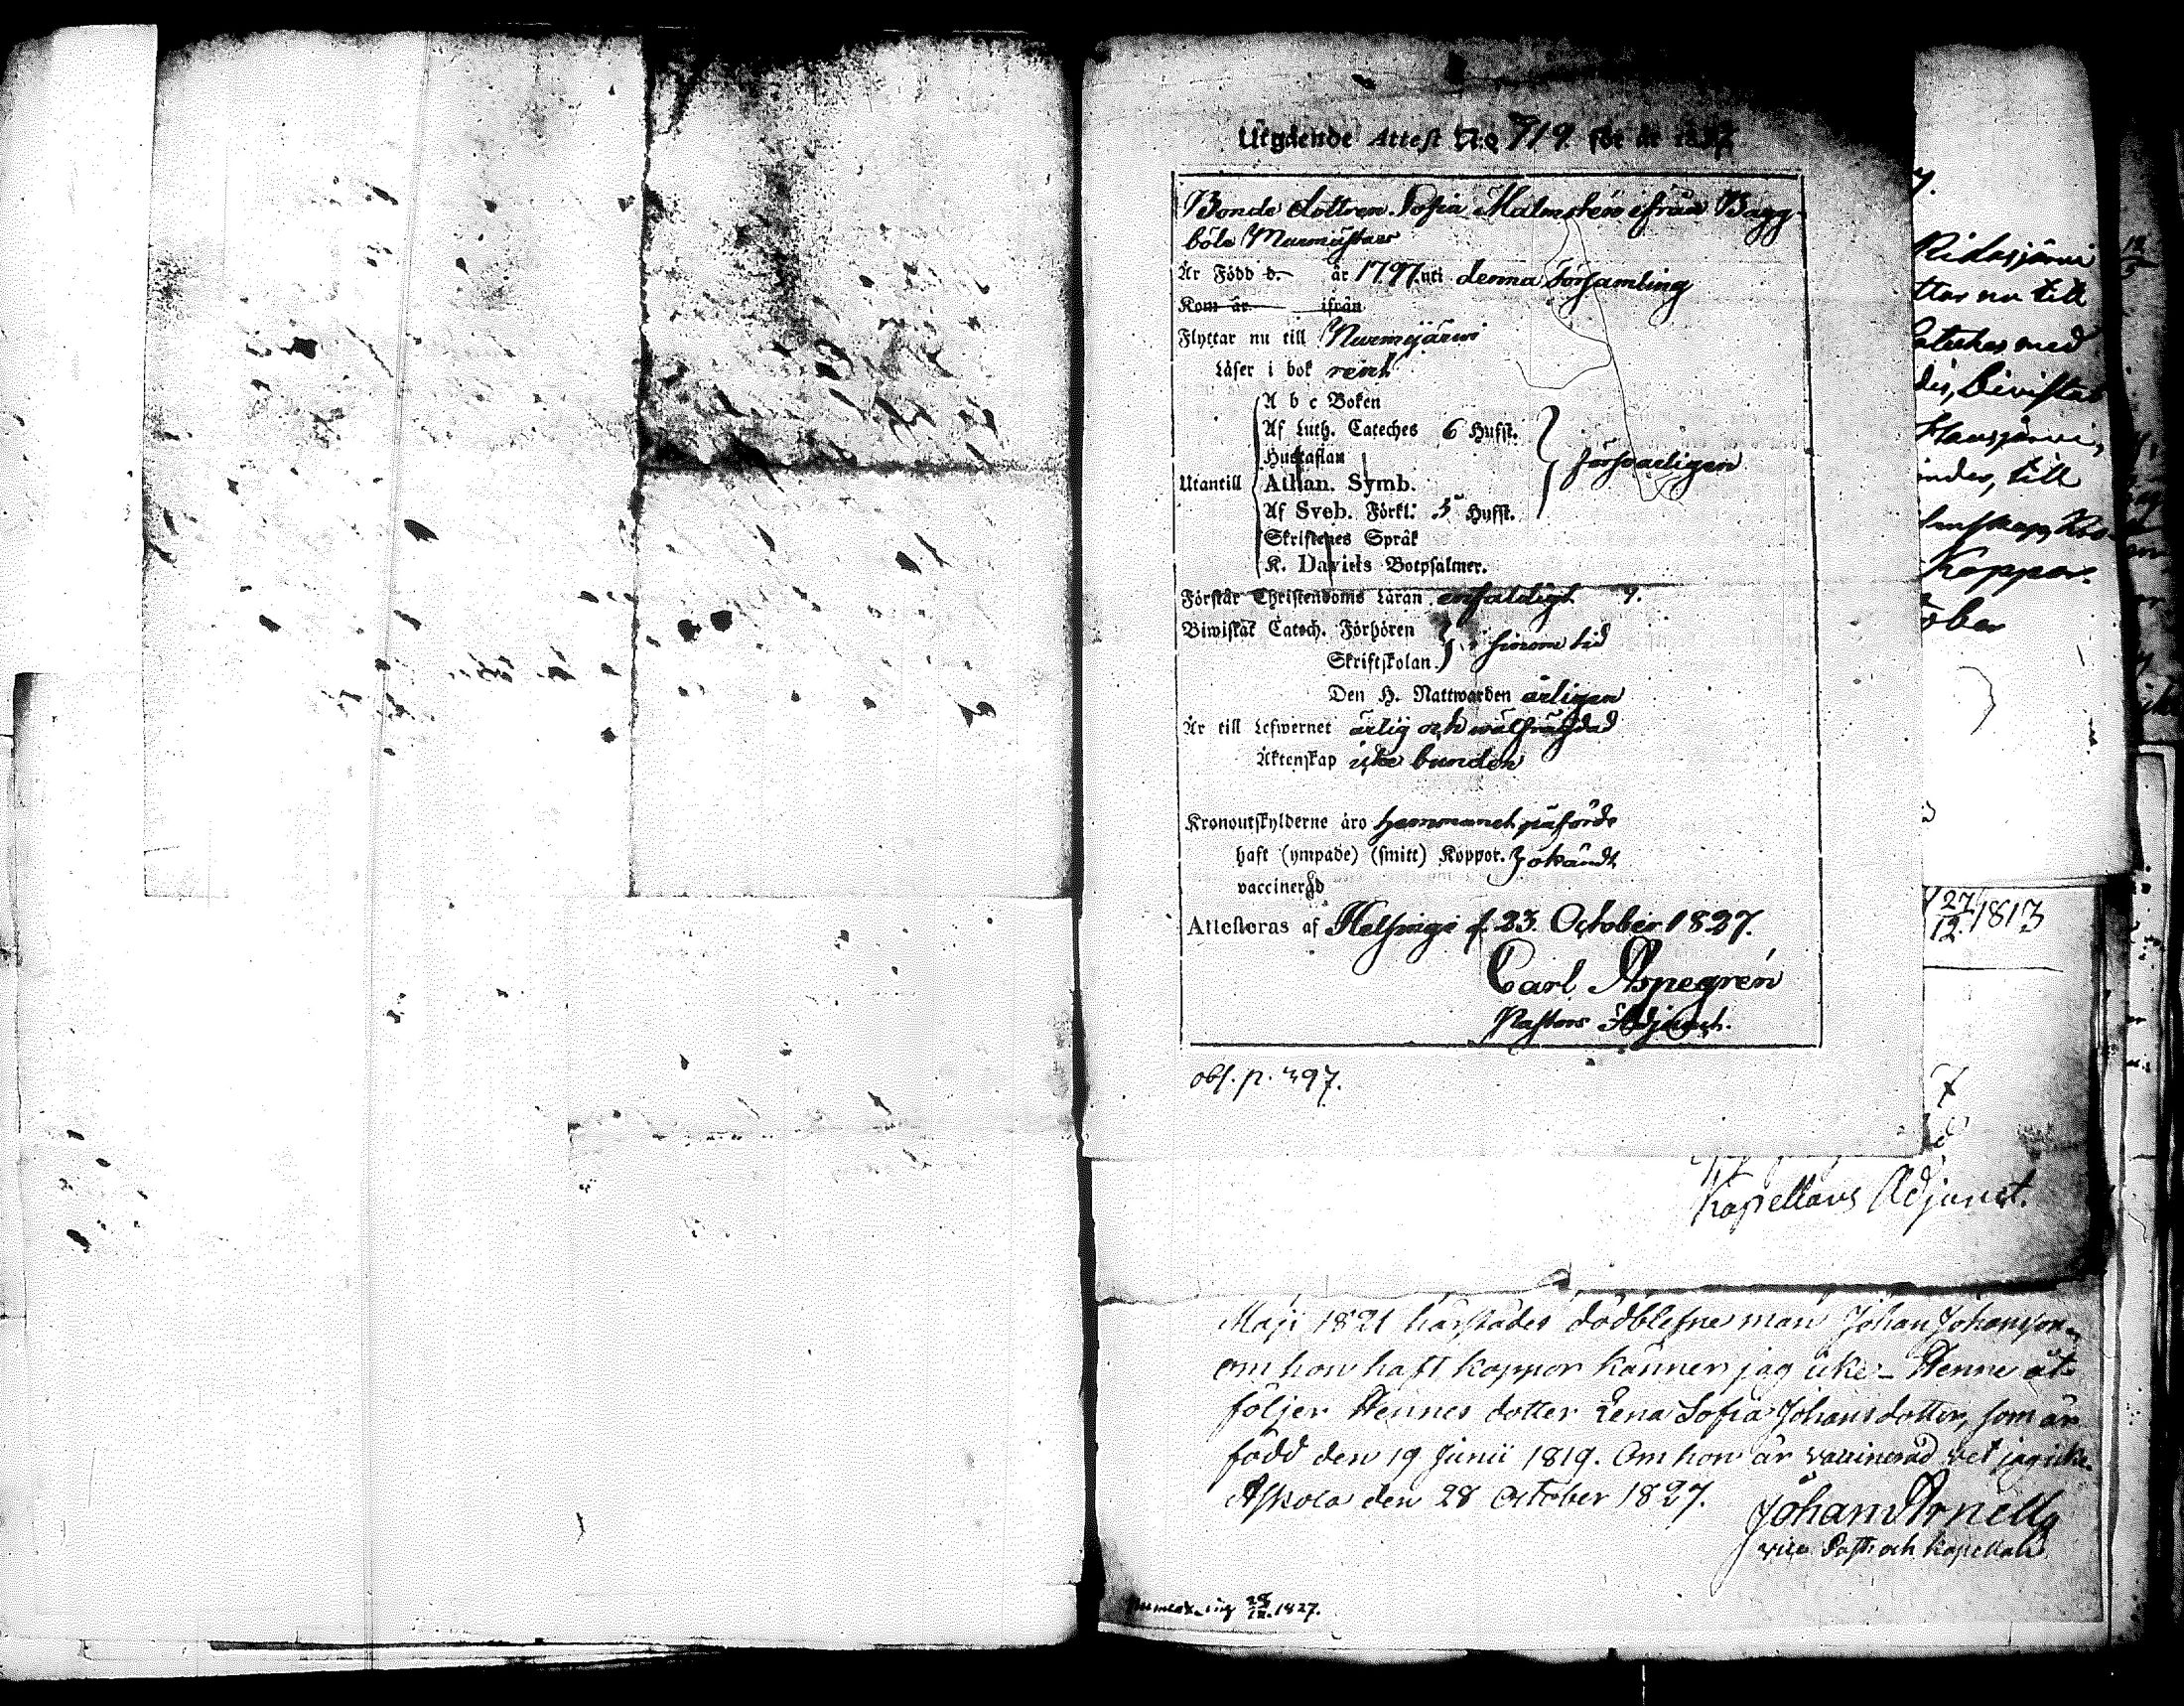 Utgående Attest N:o 719. för år 1827
Bonde dottren Sofia Malmsten ifrån Bagg-
böle Murmästars
Är Född d. år 1797 uti denna Församling
Kom år ifrån
Flyttar nu till Nurmijärvi
Läser i bok rent
A b c Boken
Af Luth. Cateches 6 Hufst.
Hustaflan
försvarligen
Utantill
Athan. Symb.
Af Sveb. Förkl. 5 Hufst.
Skriftenes Språk
K. Davids Botpsalmer.
Förstår Christendoms Läran enfaldigt
Biwistat Catech. Förhören
i sinom tid
Skriftskolan.
Den H. Nattwarden årligen
Är till Lefwernet ärlig och wälfrägdad
Äktenskap icke bunden
Kronoutskylderne äro hemmanet påförde
haft (ympade) (smitt) Koppor. okändt
vaccinerad
Attesteras af Helsinge d. 23. October 1827.
Carl Aspegrén
Pastors Adjunct.
obs. p. 397.
Ridasjärvi
ttar nu till
med
des, bivistat
Hausjärvi,
till
Koppor.
27/12 1813
Kapellans Adjunct.
Maji 1821 härstädes dödblefne man Johan Johansson,
om hon haft koppor känner jag icke – Henne åt-
följer Hennes dotter Lena Sofia Johansdotter, som är
född den 19 Junii 1819. Om hon är vaccinerad vet jag icke.
Askola den 28 October 1827.
Johan Arnell
vice Past: och Kapellan
28/12. 1827.